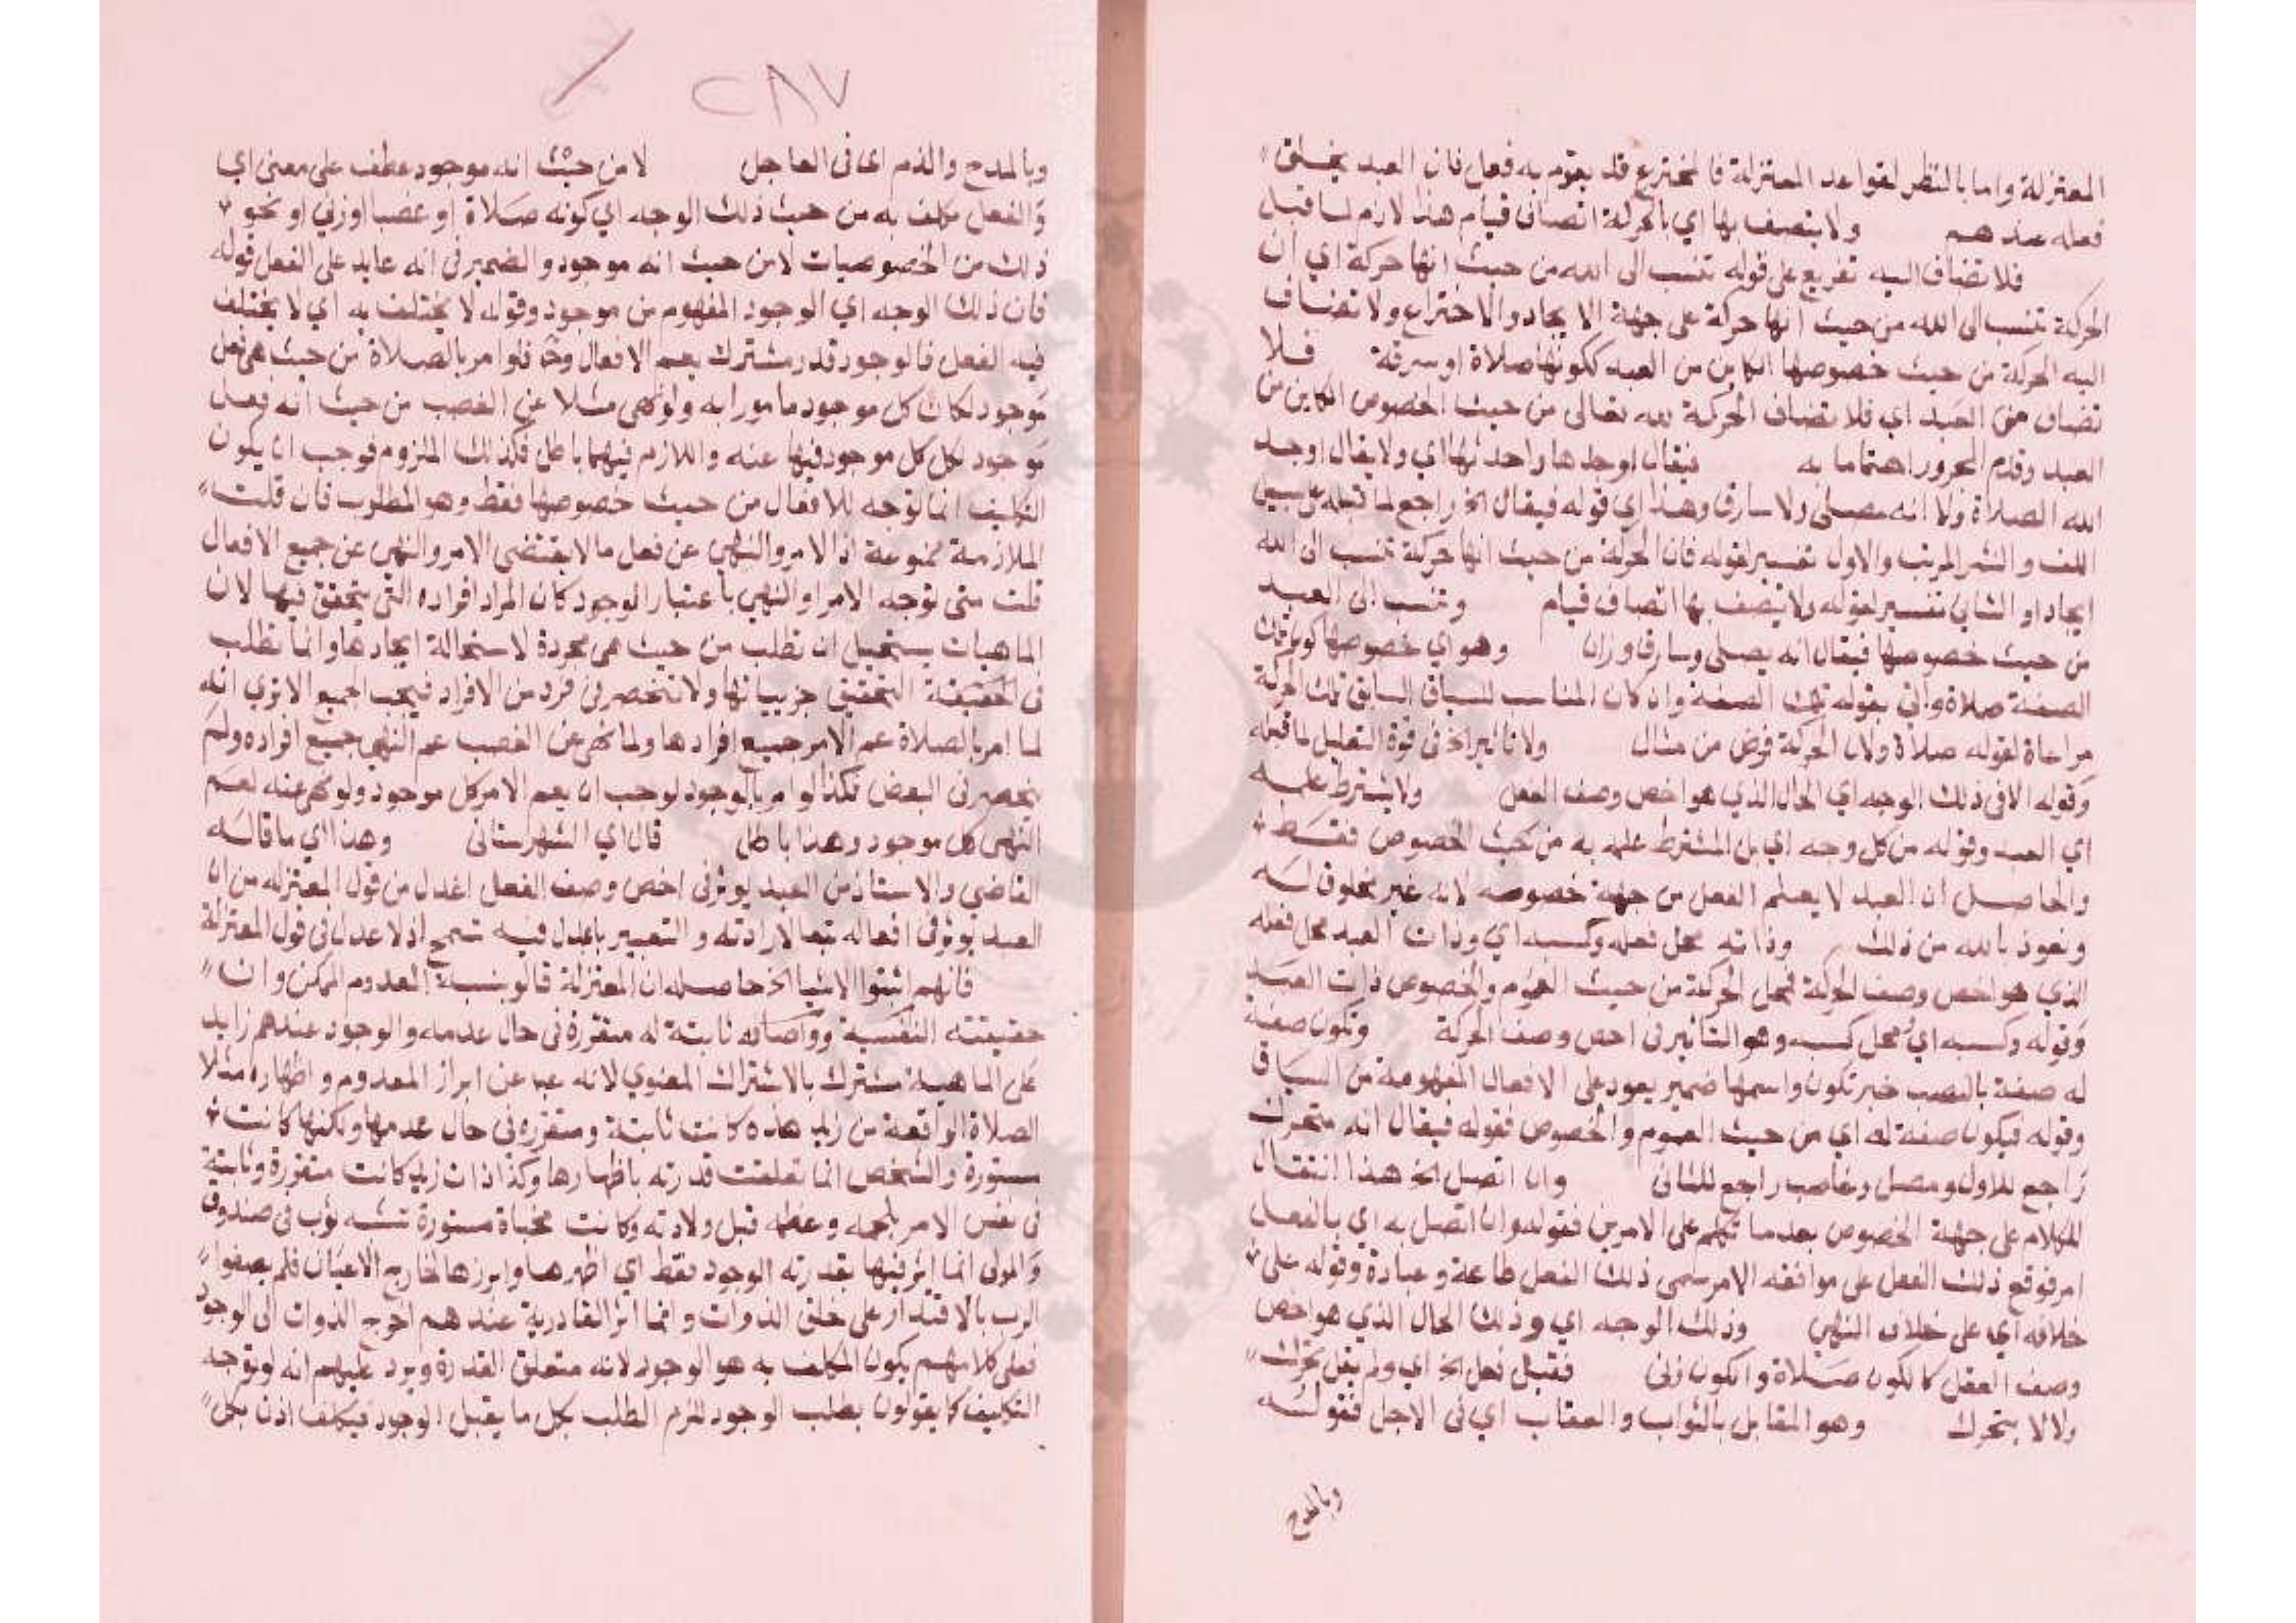 المعتزلة واما بالنظر لقواعد المعتزلة فالمخترع قد يقوم به فعل فان العبد يخلق
فعله عندهم ولا يتصف بها اي بالحركة اتصاف قيام هذا لازم لما قبل
فلا تضاف اليه تفريع على قوله تنسب الى الله من حيث انها حركة اي ان
الحركة تنسب الى الله من حيث انها حركة على جهة الايجاد والاختراع ولا تضاف
اليه الحركة من حيث خصوصها الكاين من العبد ككونها صلاة او سرقة فلا
تضاف من العبد اي فلا تضاف الحركة لله تعالى من حيث الخصوص الكاين من
العبد وقدم المجرور اهتماما به فيقال اوجدها واحدثها اي ولا يقال اوجد
الله الصلاة ولا انه مصلى ولا سارق وهذا اي قوله فيقال الخ راجع لما قبله على سبيل
اللف والنشر المرتب والاول تفسير لقوله فان الحركة من حيث انها حركة تنسب الى الله
ايجادا و الثاني تفسير لقوله ولا يتصف بها اتصاف قيام وتنسب الى العبد
من حيث خصوصها فيقال انه يصلى وسارق وزان وهو اي خصوصها كون تلك
الصفة صلاة واتى بقوله تلك الصفة وان كان المناسب للسياق السابق تلك الحركة
مراعاة لقوله صلاة ولان الحركة فرض من مثال ولا تاثير الخ في قوة التعليل لما قبله
وقوله الا في ذلك الوجه اي الحال الذي هو اخص وصف الفعل ولا يشترط علمه
اي العبد وقوله من كل وجه اي بل المشترط علمه به من حيث الخصوص فقط
والحاصل ان العبد لا يعلم الفعل من جهة خصوصه لانه غير مخلوق له
ونعوذ بالله من ذلك وذاته محل فعله وكسبه اي وذات العبد محل فعله
الذي هو اخص وصف الحركة فمحل الحركة من حيث العموم والخصوص ذات العبد
وقوله وكسبه اي ومحل كسبه وهو التاثير في اخص وصف الحركة وتكون صفة
له صفة بالنصب خبر تكون واسمها ضمير يعود على الافعال المفهومة من السياق
وقوله فيكون صفة له اي من حيث العموم والخصوص فقوله فيقال انه متحرك
راجع للاول ومصل وغاصب راجع للثاني وان اتصل الخ هذا انتقال
للكلام على جهة الخصوص بعد ما تكلم على الامرين فقوله وان اتصل به اي بالفعل
امر فوقع ذلك الفعل على موافقة الامر سمى ذلك الفعل طاعة وعبادة وقوله على
خلافه اي على خلاف النهي وذلك الوجه اي وذلك الحال الذي هو اخص
وصف الفعل كالكون صلاة والكون زنى فقيل فعل الخ اي ولم يقل تحرك
ولا لا يتحرك وهو المقابل بالثواب والعقاب اي في الاجل فقوله
وبالمدح
٢٨٧
وبالمدح والذم اي في العاجل لا من حيث انه موجود عطف على معنى اي
والفعل مكلف به من حيث ذلك الوجه اي كونه صلاة او غصبا او زنى او نحو
ذلك من الخصوصيات لا من حيث انه موجود والضمير في انه عايد على الفعل قوله
فان ذلك الوجه اي الوجود المفهوم من موجود وقوله لا يختلف به اي لا يختلف
فيه الفعل فالوجود قدر مشترك يعم الافعال وح فلو امر بالصلاة من حيث هي فعل
موجود لكان كل موجود مامورا به ولو نهى مثلا عن الغصب من حيث انه فعل
موجود لكل كل موجود فيها عنه واللازم فيهما باطل فكذلك الملزوم فوجب ان يكون
التكليف انما توجه للافعال من حيث خصوصها فقط وهو المطلوب فان قلت
الملازمة ممنوعة اذ الامر والنهي عن فعل ما لا يقتضى الامر والنهي عن جميع الافعال
قلت متى توجه الامر او النهي باعتبار الوجود كان المراد افراده التي يتحقق فيها لان
الماهيات يستحيل ان تطلب من حيث هي مجردة لاستحالة ايجادها وانما تطلب
في الحقيقة التحقيق جزيياتها ولا تنحصر في فرد من الافراد فيجب الجميع الا ترى انه
لما امر بالصلاة عم الامر جميع افرادها ولما نهى عن الغصب عم النهي جميع افراده ولم
ينحصر في البعض فكذا لو امر بالوجود لوجب ان يعم الامر كل موجود ولو نهى عنه لعم
النهى كل موجود وهذا باطل قال اي الشهرستاني وهذا اي ما قاله
القاضي والاستاذ من العبد يوثر في اخص وصف الفعل اعدل من قول المعتزله من ان
العبد يوثر في افعاله تبعا لارادته والتعبير باعدل فيه تسمح اذ لا عدل في قول المعتزلة
فانهم اثبتوا الاشيا الخ حاصله ان المعتزلة قالوا بنسبة المعدوم الممكن وان
حقيقته النفسية واوصافه ثابتة له متقررة في حال عدمه والوجود عندهم زايد
على الماهية مشترك بالاشتراك المعنوي لانه عبا عن ابراز المعدوم واظهاره مثلا
الصلاة الواقعة من زيد هذه كانت ثابتة ومتقررة في حال عدمها ولكنها كانت
مستورة والشخص انما تعلقت قدرته باظهارها وكذا ذات زيد كانت متقررة وثابتة
في نفس الامر بلحمه وعظمه قبل ولادته وكانت مخباة مستورة تشبه ثوب في صندوق
والمولى انما اثر فيها بقدرته الوجود فقط اي اظهرها وابرزها لخارج الاعيان فلم يصفوا
الرب بالاقتدار على خلق الذوات وانما اثر القادرية عندهم اخرج الذوات الى الوجود
فعلى كلامهم يكون المكلف به هو الوجود لانه متعلق القدرة ويرد عليهم انه لو توجه
التكليف كما يقولون بطلب الوجود للزم الطلب بكل ما يقبل الوجود فيكلف اذن بكل